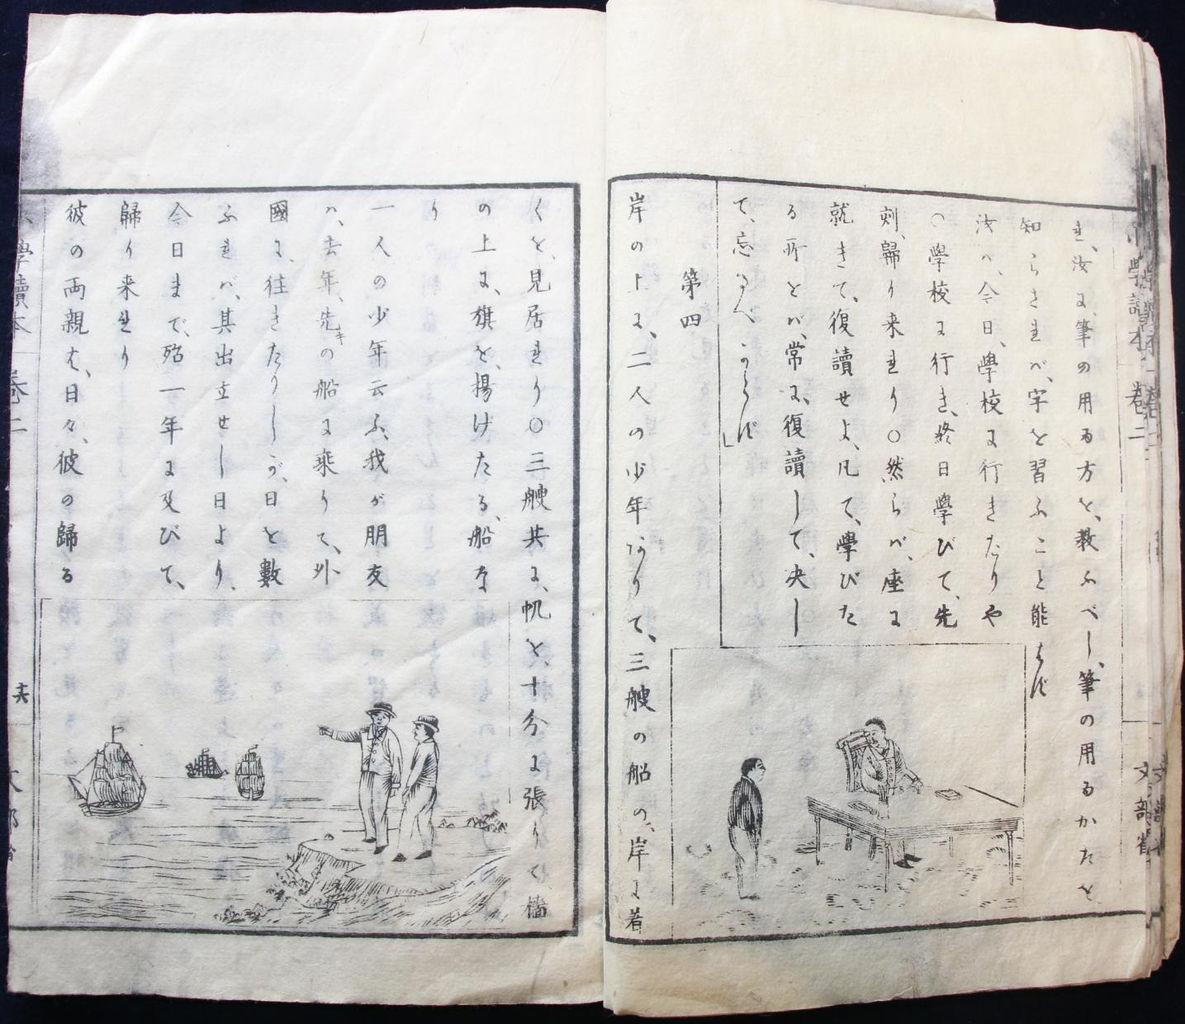 れ、汝に筆の用る方を、教ふべし、筆の用るかたを
知らされバ、字を習ふこと能はず
汝ハ、今日、學校に行きたりや
〇學校に行き、終日學びて、先
刻、歸り来れり〇然らバ、座に
就きて、復讀せよ、凡て、學びた
る所をバ、常に、復讀して、决し
て、忘るべからず」
第四
岸の上に、二人の少年ありて、三艘の船の、岸に着
くを、見居れり〇三艘共に、帆を、十分に張りて、檣
の上に、旗を、揚げたる、船な
り
一人の少年云ふ、我が朋友
ハ、去年、先キの船に乗りて、外
國に、往きたりしが、日を數
ふれバ、其出立せし日より、
今日まで、殆一年に及びて、
歸り来れり
彼の両親も、日々、彼の歸る
小學讀本 卷二
文部省
學讀本 卷二